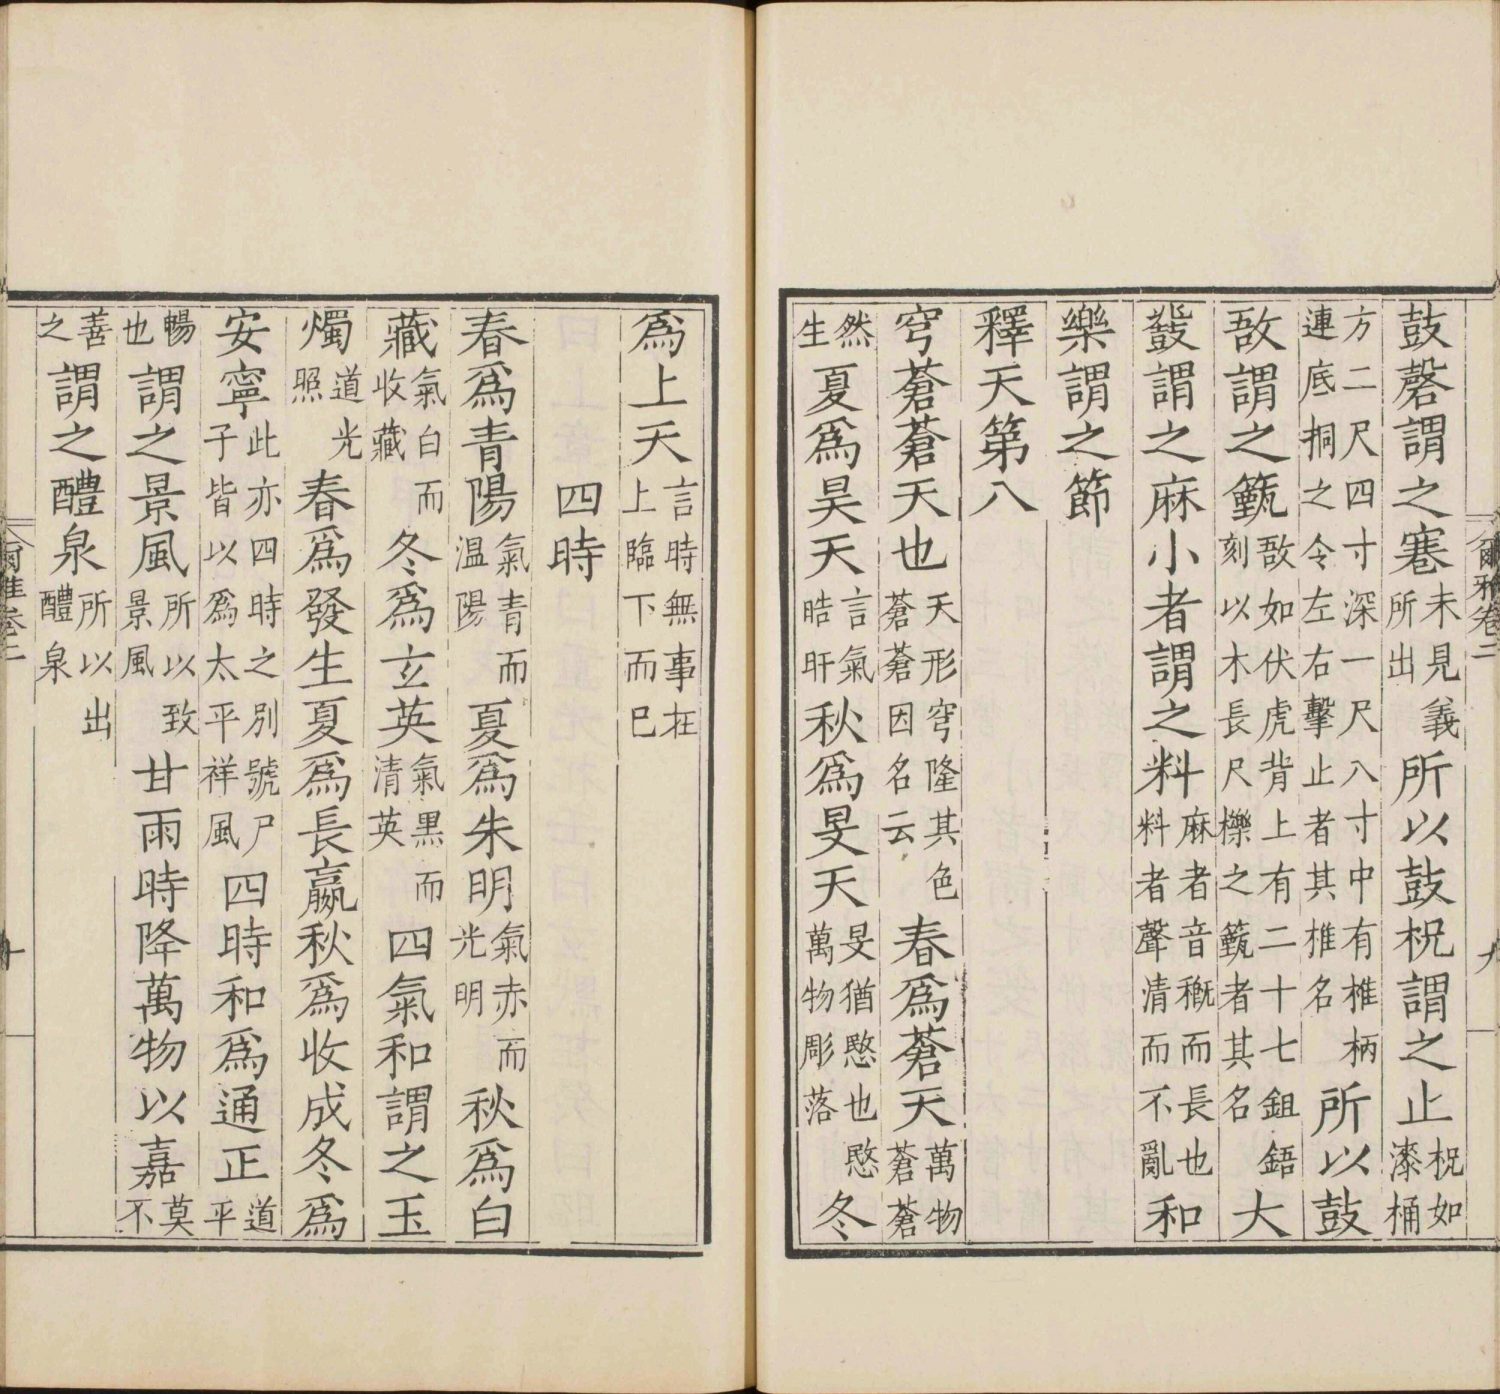 爾雅卷二 九
鼓磬謂之寋未見義所出所以鼓柷謂之止柷如漆桶
方二尺四寸深一尺八寸中有椎柄連底挏之令左右擊止者其椎名所以鼓
敔謂之籈敔如伏虎背上有二十七鉏鋙刻以木長尺櫟之籈者其名大
鼗謂之麻小者謂之料麻者音穊而長也料者聲清而不亂和
樂謂之節
釋天第八
穹蒼蒼天也天形穹隆其色蒼蒼因名云春爲蒼天萬物蒼蒼
然生夏爲昊天言氣晧旰秋爲旻天旻猶愍也愍萬物彫落冬
爲上天言時無事在上臨下而已
四時
春爲青陽氣青而溫陽夏爲朱明氣赤而光明秋爲白
藏氣白而收藏冬爲玄英氣黑而清英四氣和謂之玉
燭道光照春爲發生夏爲長嬴秋爲收成冬爲
安寧此亦四時之別號尸子皆以爲太平祥風四時和爲通正道平
暢也謂之景風所以致景風甘雨時降萬物以嘉莫不
善之謂之醴泉所以出醴泉
爾雅卷二 十